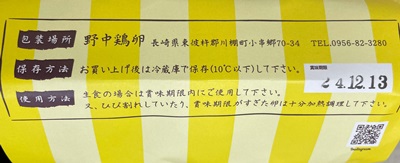 包装場所 野中鶏卵 長崎県東彼杵郡川棚町小串郷70-34 TEL.0956-82-3280
賞味期限
保存方法 お買い上げ後は冷蔵庫で保存(10℃以下)して下さい。
24.12.13
使用方法 生食の場合は賞味期限内にご使用して下さい。
又、ひび割れしていたり、賞味期限がすぎた卵は十分加熱調理して下さい。